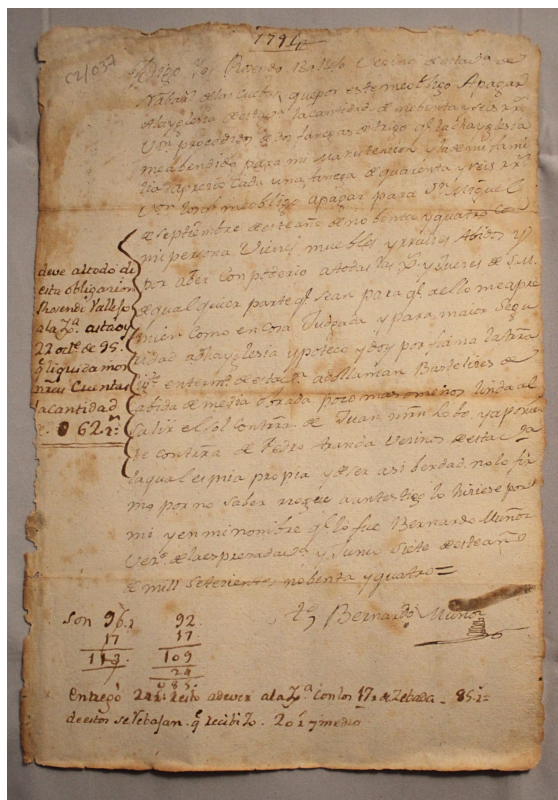 1794
C2/037
Digo Yo Rosendo Ballejo Vecino de esta de
Naval de las Cuebas que por este me obligo Apagar
Ala yglesia de esta la cantidad de nobenta y seis rrs
Von procedidos de dos fanegas de trigo q la dha yglesia
me a bendido para mi manutencion y la de mi fami
lia a precio cada una fanega de quarenta y seis rrs
Von los q me obligo a pagar para Sn Miguel
de septiembre de este año de nobenta y quatro con
mi persona Vienes muebles y rraices Abidos y
por aber con poderio a todas las y Jueces de S.M.
de qualquiera parte q sean para q a ello me apre
mien como en cosa Juzgada y para maior segu
ridad a dha yglesia ypoteco y doy por fianza la tierra
en termno de esta q llaman
cabida de media obrada poco mas o menos linda al
salir el sol con tierra de Juan Lobo, y a ponien
te con tierra de Pedro Aranda Vecinos de esta dha
la qual es mia propia y de ser asi berdad no lo fir
mo por no saber rogue a un testigo lo hiciese por
mi y en mi nombre q lo fue Bernardo Muñoz
Vezo de la espresada y Junio Siete de este año
de mill setecientos nobenta y quatro =
tgo Bernardo Muñoz
deve al todo de
esta obligacion
Rosendo Vallejo
a la Ya asta oy
22 octe de 95.
q liquidamos
Cuentas
la cantidad
062 rs
Son 96 r 92
17 17
113 109
24
085
Entregó 24 rs resto a dever a la Ya con los 17 r de Zebada - 85 rs
de estos se rebajan q recibi - 20 r y medio